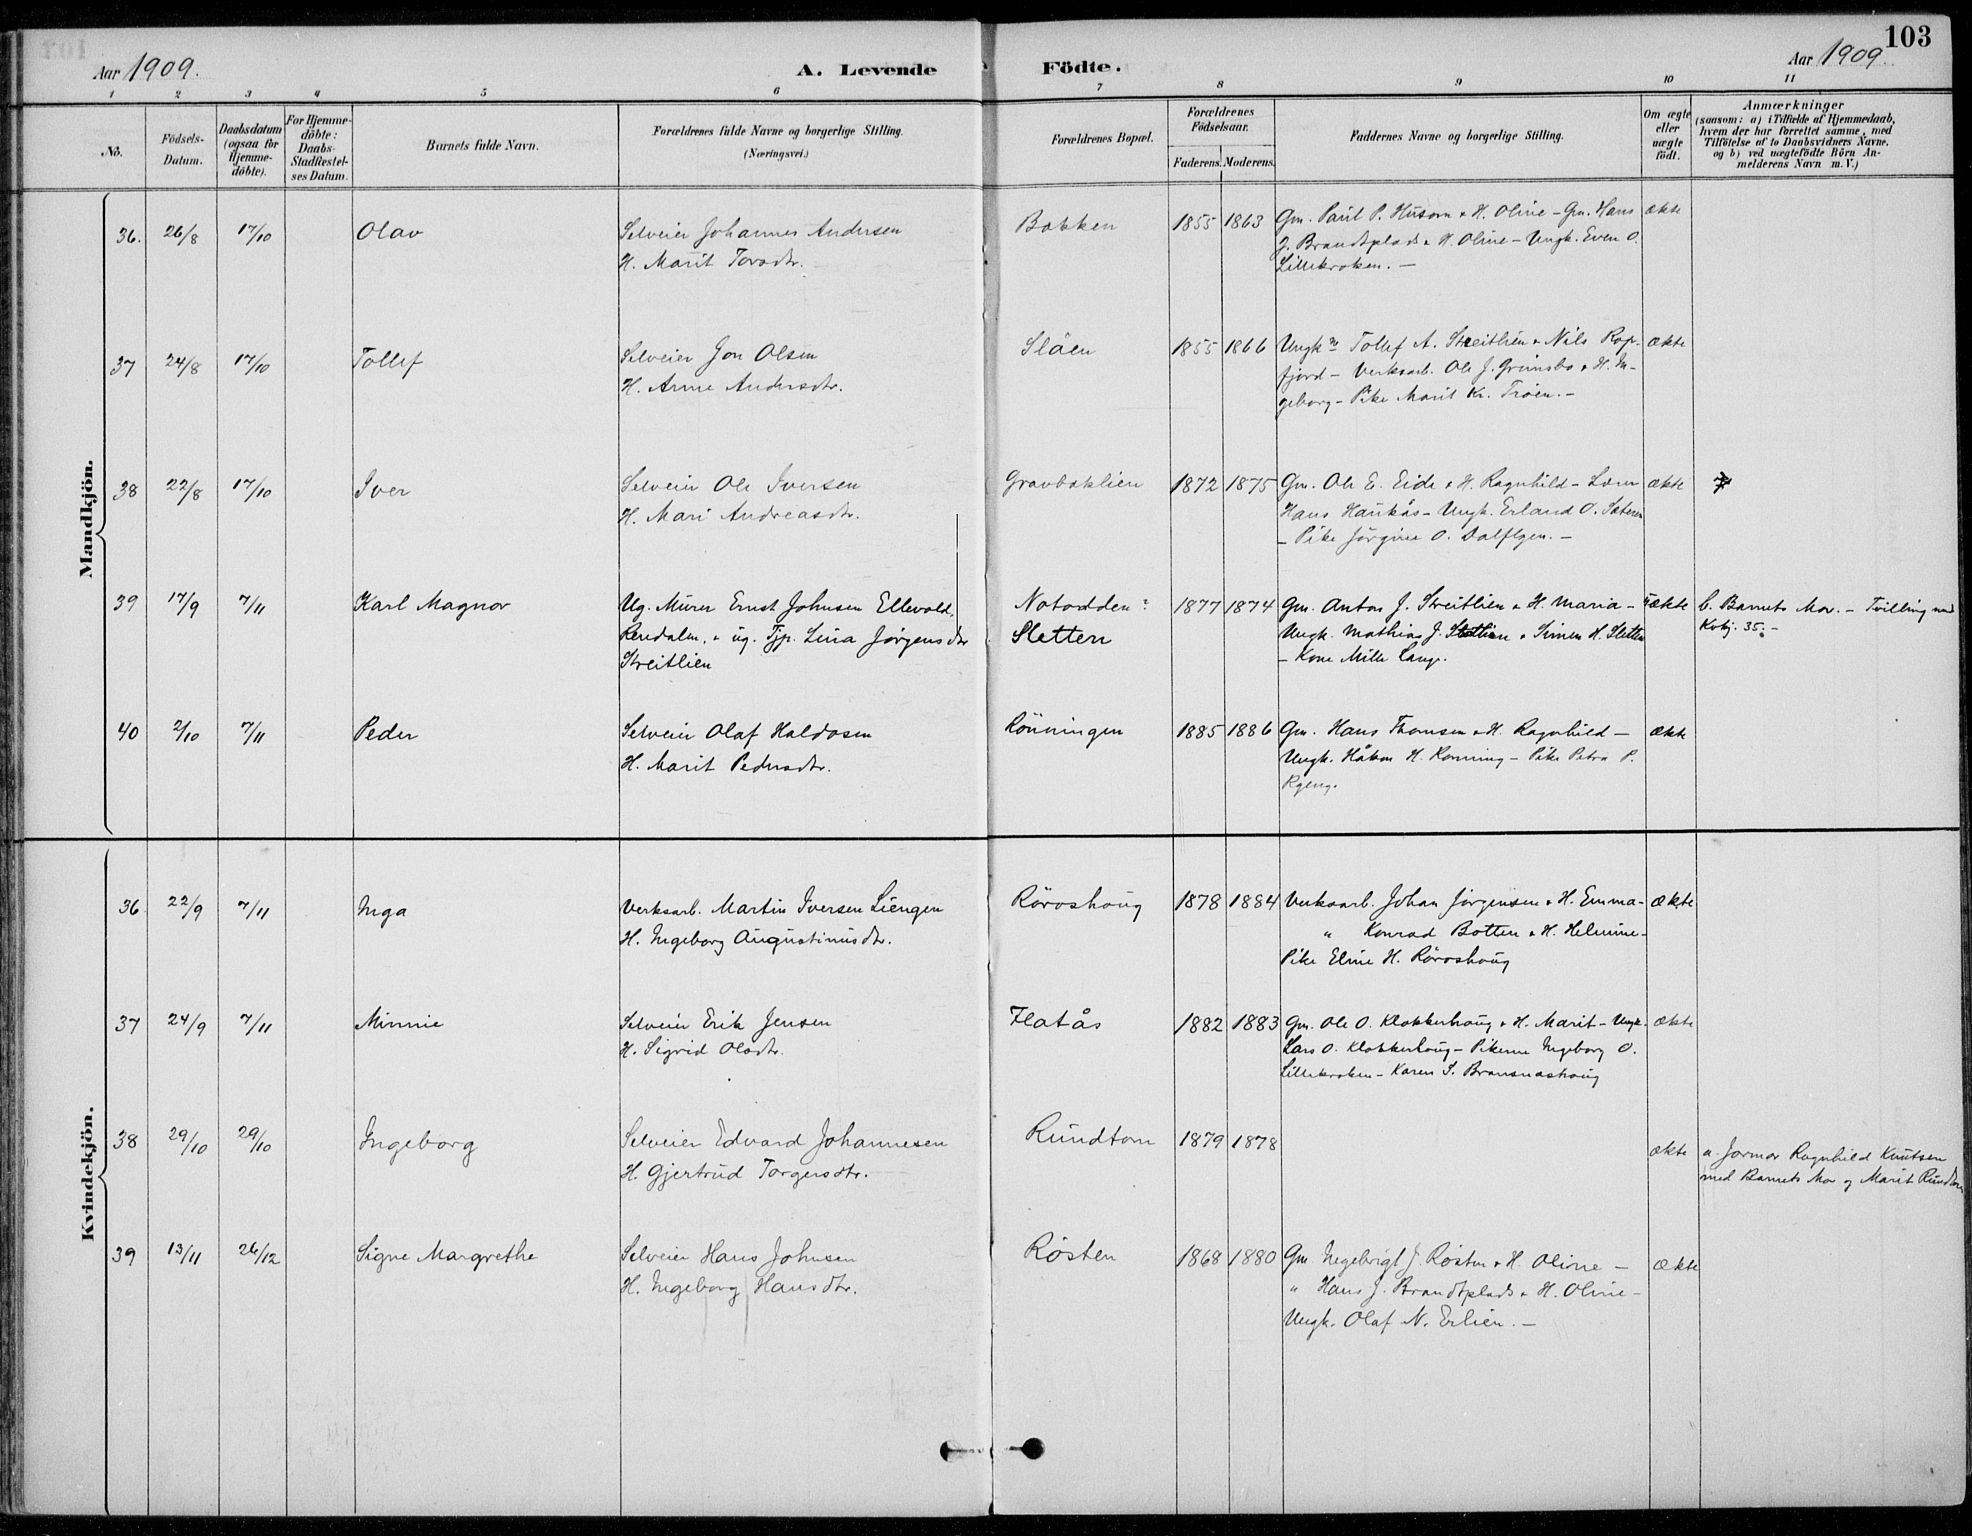 103
Aar 1909.
A. Levende
Födte.
Aar 1909.
1 2 3 4 5 6 7 8 9 10 11
No.
Födsels-Datum.
Daabsdatum (ogsaa for Hjemmedöbte).
For Hjemmedöbte: Daabs-Stadfæstelses Datum.
Barnets fulde Navn.
Forældrenes fulde Navne og borgerlige Stilling.
(Næringsvei.)
Forældrenes Bopæl.
Forældrenes Födselsaar.
Faderens. Moderens.
Faddernes Navne og borgerlige Stilling.
Om ægte eller uægte født.
Anmærkninger
(saasom: a) i Tilfælde af Hjemmedaab,
hvem der har forrettet samme, med
Tilföielse af to Daabsvidners Navne,
og b) ved uægtefödte Börn An-
melderens Navn m. V.)
Mandkjön.
36. 26/8 17/10 Olav Selveier Johannes Andersen Bakken 1855 1863 Gm. Paul P. Husom & H. Oline - Gm. Hans ækte
H. Marit Torsdtr. J. Brandtplads & H. Oline - Ungk. Even O.
Lillekroken. -
37 24/8 17/10 Tollef Selveier Jon Olsen Slåen 1855 1866 Ungkn Tollef A. Streitlien & Nils Rop- ækte
H. Anne Andersdtr. fjord - Verksarb. Ole J. Grimsbo & H. In-
geborg - Pike Marit Kr. Trøen. -
38 22/8 17/10 Iver Selveier Ole Iversen Gravbaklien 1872 1875 Gm. Ole E. Eide & H. Ragnhild - Lærer ækte
H. Mari Andreasdtr. Hans Haukås - Ungk. Erland O. Sæteren
- Pike Jörgine O. -
39 17/9 7/11 Karl Magnor Ug. Murer Ernst Johnsen Ellevold, Notodden: 1877 1874 Gm. Anton J. Streitlien & H. Maria - uækte b. Barnets Mor. - Tvilling med
Rendalen, & ug. Tjp. Lina Jørgensdtr Sletten Ungk. Mathias J. & Simen H. Sletten Kvkj. 35. -
Streitlien - Kone Mille Lange.
40 2/10 7/11 Peder Selveier Olaf Haldosen Rönningen 1885 1886 Gm. Hans Thomsen & H. Ragnhild - ækte
H. Marit Pedersdtr. Ungk. Håkon H. Rønning - Pike Petra P.
Rgeng.
Kvindekjön.
36 22/9 7/11 Inga Verksarb. Martin Iversen Liengen Röroshoug 1878 1884 Verksarb. Johan Jørgensen & H. Emma - ækte
H. Ingeborg Augustinusdtr. " Konrad Botten & H. Helmine -
Pike Eline H. Röroshoug
37 24/9 7/11 Minnie Selveier Erik Jensen Flatås 1882 1883 Gm. Ole O. Klokkerhoug & H. Marit - Ungk. ækte
H. Sigrid Olsdtr. Lars O. Klokkerhoug - Pikerne Ingeborg O.
Lillekroken - Karen S. Bransnashoug
38 29/10 29/10 Ingeborg Selveier Edvard Johannesen Rundtom 1879 1878 ækte a. Jormor Ragnhild Knutsen
H. Gjertrud Torgersdtr. med Barnets Mor og Marit Rundtom
39 13/11 26/12 Signe Margrethe Selveier Hans Johnsen Røsten 1868 1880 Gm Ingebrigt J. Røsten & H. Oline - ækte
H. Ingeborg Hansdtr. " Hans J. Brandtplads & H. Oline -
Ungk. Olaf N. Erlien. -